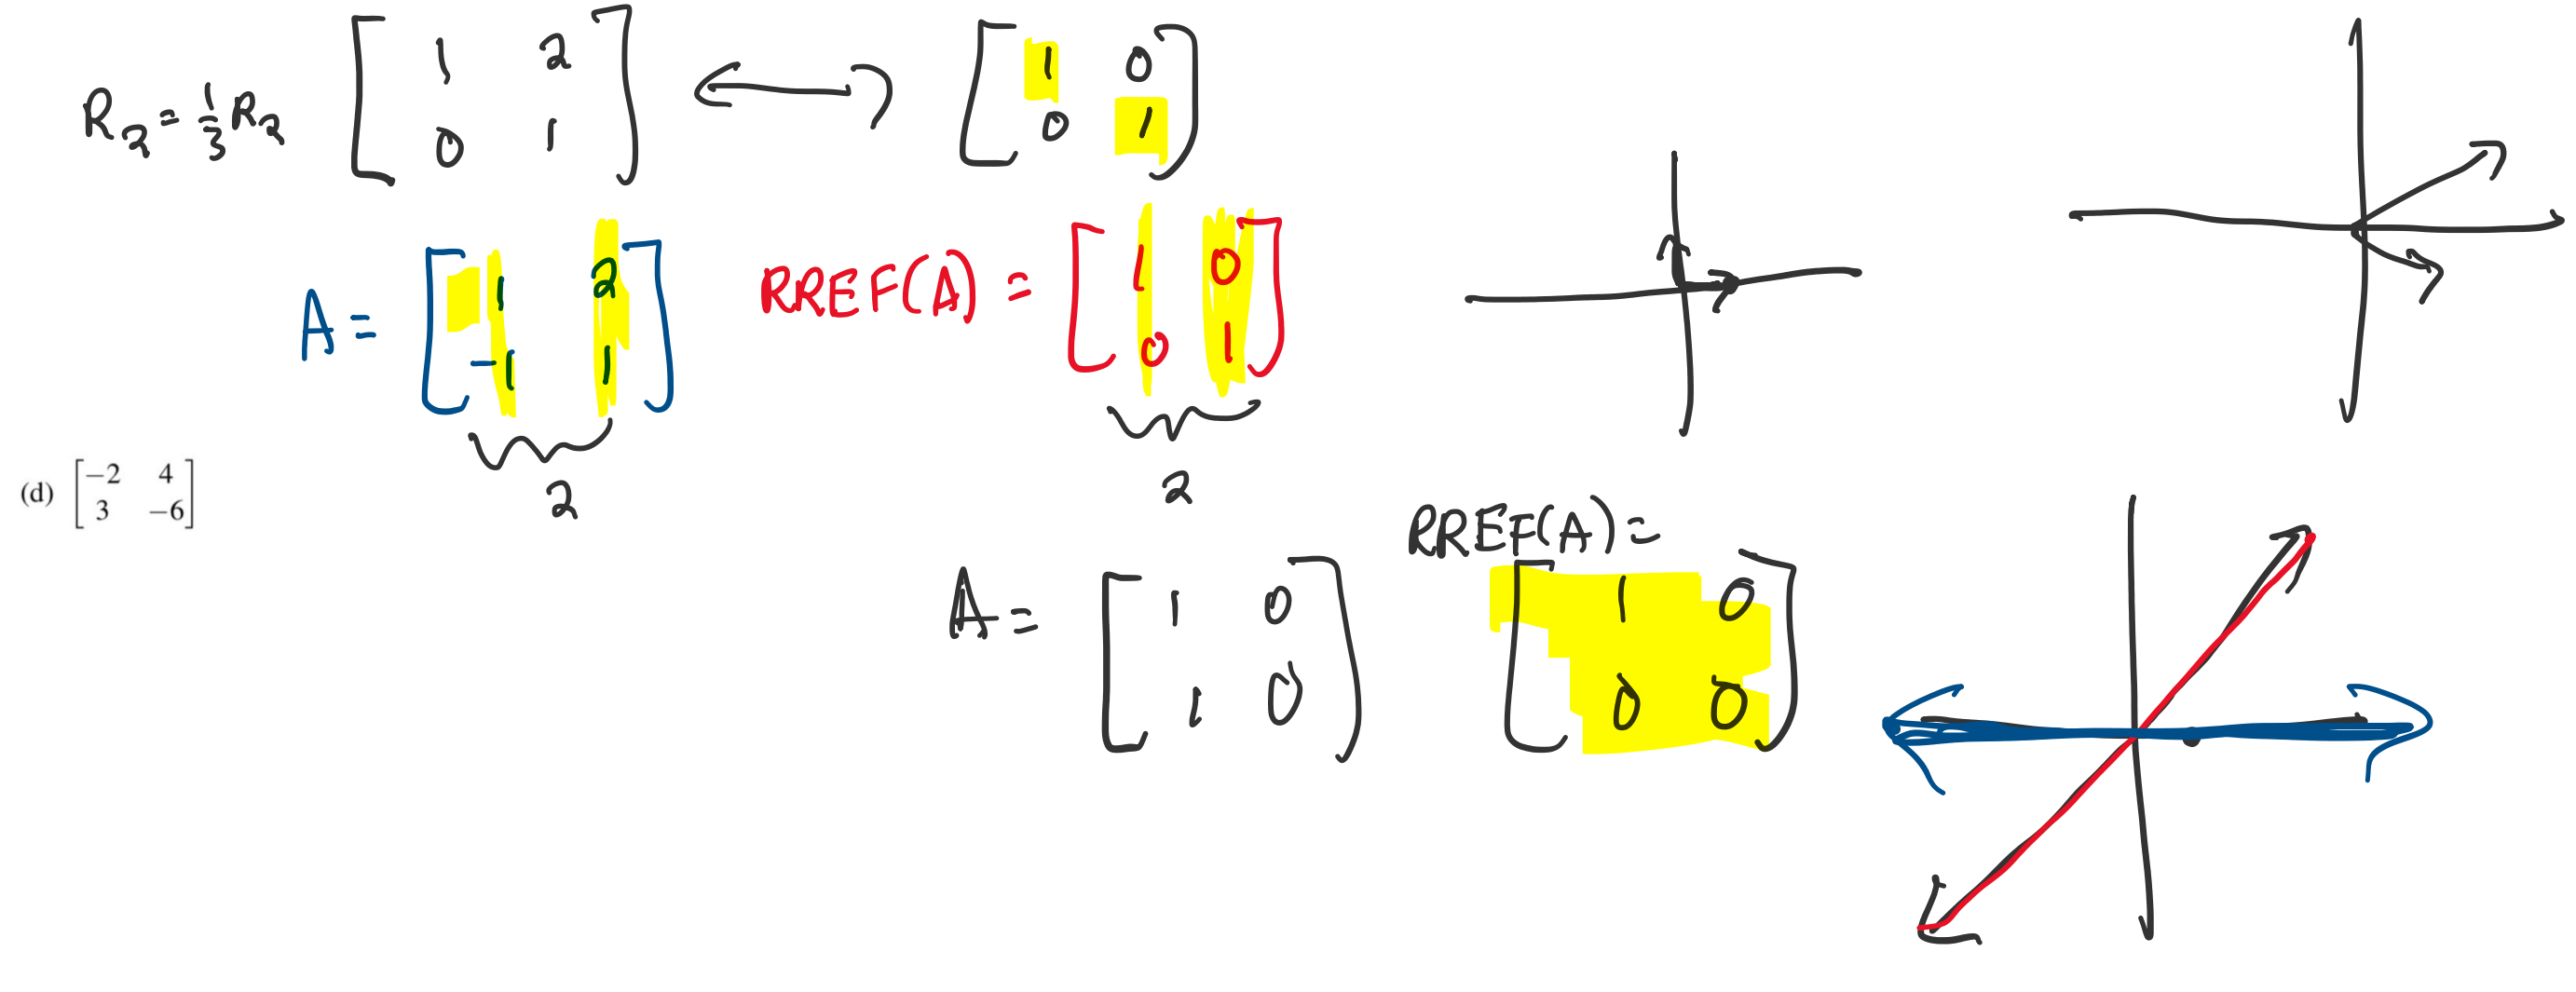 R₂ = ⅓ R₂ [1 2; 0 1] ⟷ [1 0; 0 1]
A = [1 2; -1 1] RREF(A) = [1 0; 0 1]
2 2
(d) [−2 4; 3 −6]
A = [1 0; 1 0] RREF(A) = [1 0; 0 0]